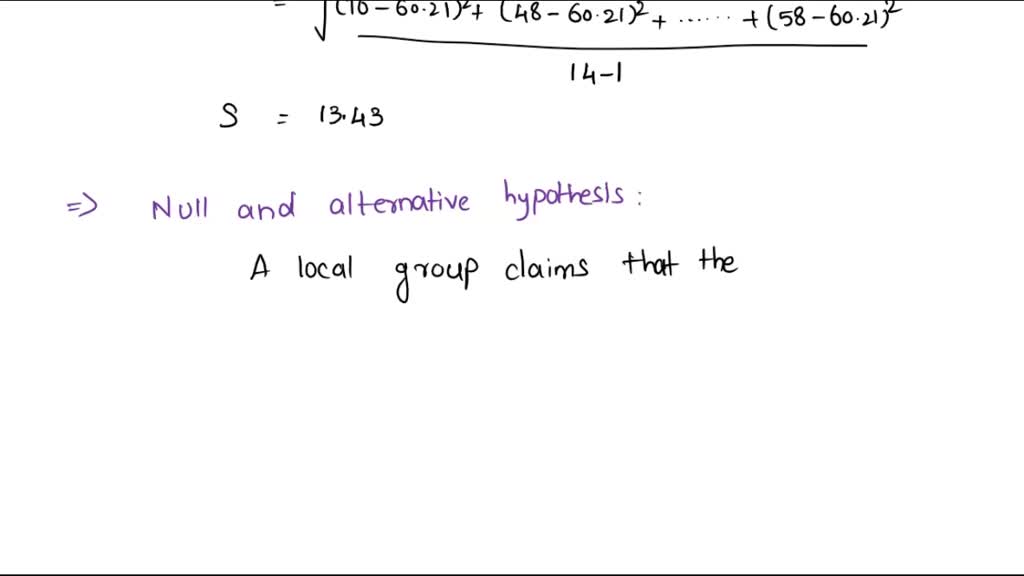 = √(10-60.21)²+ (48-60.21)²+ ...... +(58-60.21)²
14-1
S = 13.43
=> Null and alternative hypothesis :
A local group claims that the